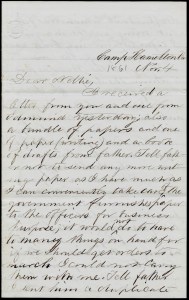 Camp Hamilton
1861 Nov 4
Dear Nellie,
I received a
letter from you and one from
Edmund yesterday, also
a bundle of papers and one
of paper (writing) and a book
of drafts from father. Tell father
not to send any more
paper as I have as much as
I can conveniently take care
government furnishes paper
to the officers for business
purpose, it would not do to have
to many things on hand for
if we should get orders to
march I could not carry
them with me. Tell father
I sent him a duplicate